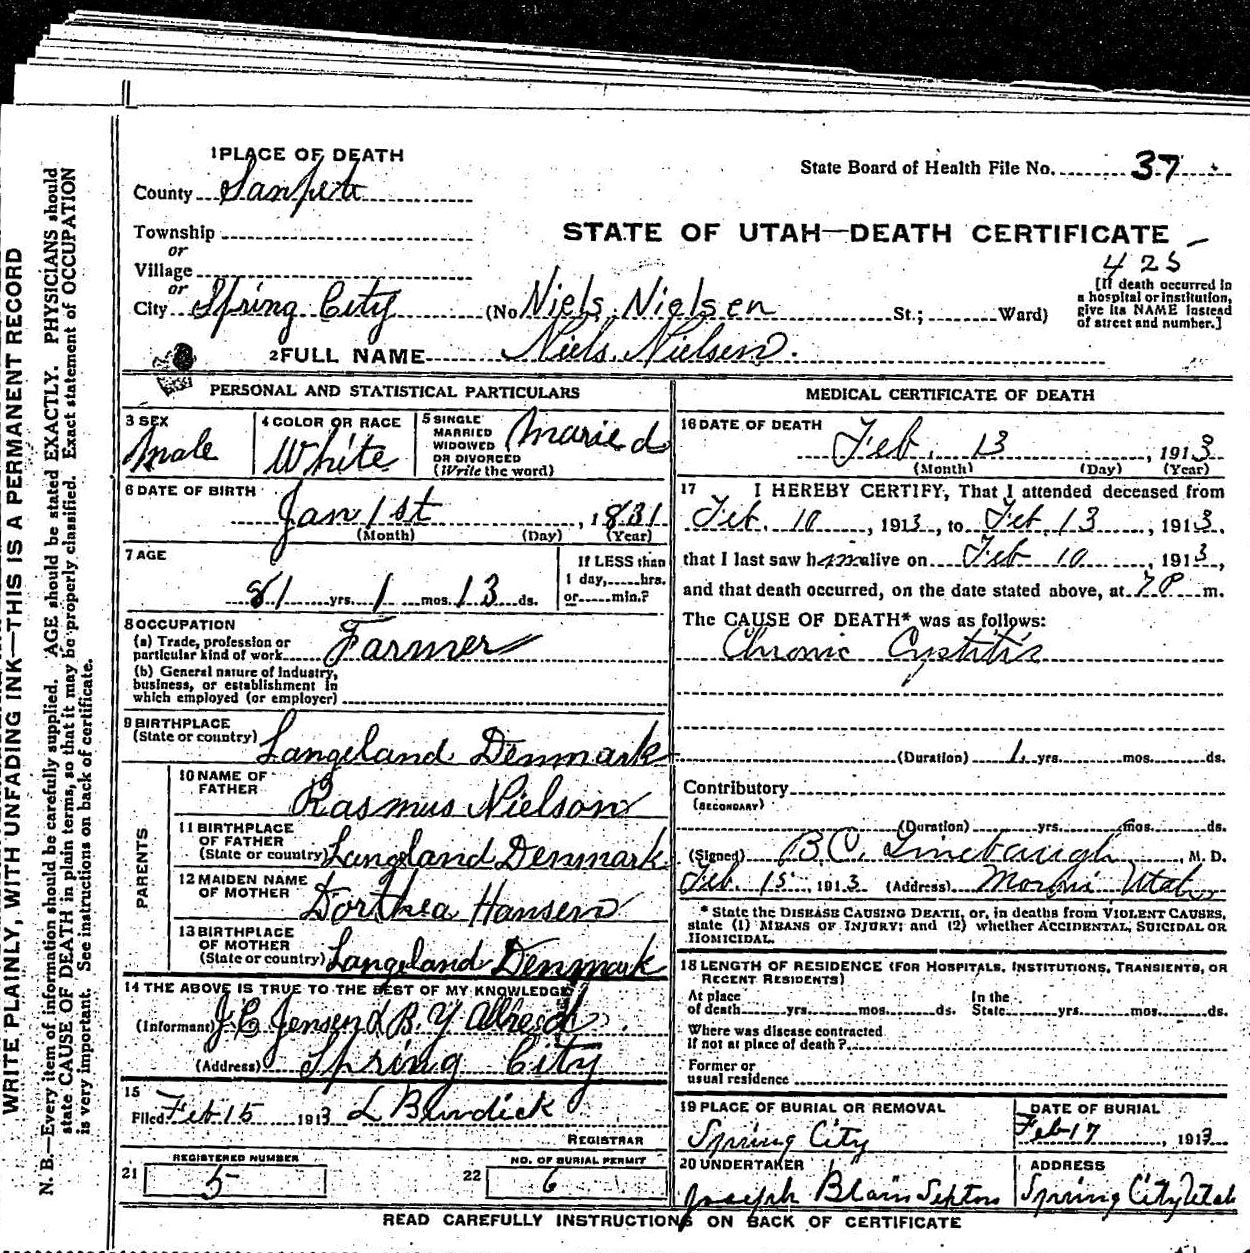 WRITE PLAINLY, WITH UNFADING INK—THIS IS A PERMANENT RECORD
N. B.—Every item of information should be carefully supplied. AGE should be stated EXACTLY. PHYSICIANS should
state CAUSE OF DEATH in plain terms, so that it may be properly classified. Exact statement of OCCUPATION
is very important. See instructions on back of certificate.
1 PLACE OF DEATH
State Board of Health File No. 37
County Sanpete
Township
or
Village
or
City Spring City
STATE OF UTAH—DEATH CERTIFICATE
425
(No Niels Nielsen St.; Ward)
[If death occurred in
a hospital or institution,
give its NAME instead
of street and number.]
2 FULL NAME Niels Nielsen.
PERSONAL AND STATISTICAL PARTICULARS
3 SEX
Male
4 COLOR OR RACE
White
5 SINGLE
MARRIED
WIDOWED
OR DIVORCED
(Write the word)
Maried
6 DATE OF BIRTH
Jan 1st, 1831
(Month) (Day) (Year)
7 AGE
81 yrs. 1 mos. 13 ds.
If LESS than
1 day, hrs.
or min.?
8 OCCUPATION
(a) Trade, profession or
particular kind of work Farmer
(b) General nature of industry,
business, or establishment in
which employed (or employer)
9 BIRTHPLACE
(State or country) Langeland Denmark
PARENTS
10 NAME OF
FATHER
Rasmus Nielson
11 BIRTHPLACE
OF FATHER
(State or country) Langland Denmark
12 MAIDEN NAME
OF MOTHER
Dorthea Hansen
13 BIRTHPLACE
OF MOTHER
(State or country) Langeland Denmark
14 THE ABOVE IS TRUE TO THE BEST OF MY KNOWLEDGE
(Informant) J. C. Jensen & B. Y Allred
(Address) Spring City
15
Filed Feb 15 1913 L Burdick
REGISTRAR
REGISTERED NUMBER
21 5
NO. OF BURIAL PERMIT
22 6
MEDICAL CERTIFICATE OF DEATH
16 DATE OF DEATH
Feb. 13, 1913
(Month) (Day) (Year)
17 I HEREBY CERTIFY, That I attended deceased from
Feb. 10, 1913, to Feb 13, 1913,
that I last saw him alive on Feb 10, 1913,
and that death occurred, on the date stated above, at 7 P m.
The CAUSE OF DEATH* was as follows:
Chronic Cystitis
(Duration) 1 yrs. mos. ds.
Contributory
(SECONDARY)
(Duration) yrs. mos. ds.
(Signed) B.C. Linebaugh, M. D.
Feb. 15, 1913 (Address) Moroni Utah
* State the DISEASE CAUSING DEATH, or, in deaths from VIOLENT CAUSES,
state (1) MEANS OF INJURY; and (2) whether ACCIDENTAL, SUICIDAL OR
HOMICIDAL.
18 LENGTH OF RESIDENCE (FOR HOSPITALS, INSTITUTIONS, TRANSIENTS, OR
RECENT RESIDENTS)
At place
of death yrs. mos. ds.
In the
State yrs. mos. ds.
Where was disease contracted
If not at place of death?
Former or
usual residence
19 PLACE OF BURIAL OR REMOVAL
Spring City
DATE OF BURIAL
Feb 17, 1913
20 UNDERTAKER
Joseph Blain Sexton
ADDRESS
Spring City Utah
READ CAREFULLY INSTRUCTIONS ON BACK OF CERTIFICATE